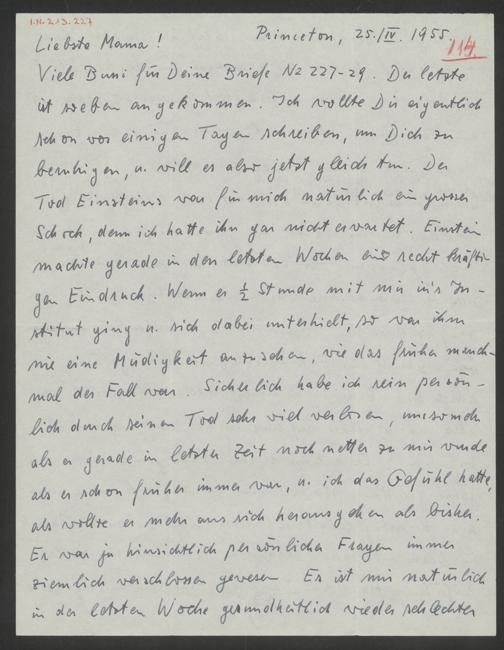 I.N. 213.227
Princeton, 25./IV. 1955.
114.
Liebste Mama!
Viele Bussi für Deine Briefe No 227-29. Der letzte
ist soeben angekommen. Ich wollte Dir eigentlich
schon vor einigen Tagen schreiben, um Dich zu
beruhigen, u. will es also jetzt gleich tun. Der
Tod Einsteins war für mich natürlich ein grosser
Schock, denn ich hatte ihn gar nicht erwartet. Einstein
machte gerade in den letzten Wochen einen recht kräfti-
gen Eindruck. Wenn er ½ Stunde mit mir in's In-
stitut ging u. sich dabei unterhielt, so war ihm
nie eine Müdigkeit anzusehen, wie das früher manch-
mal der Fall war. Sicherlich habe ich rein persön-
lich durch seinen Tod sehr viel verloren, umsomehr
als er gerade in letzter Zeit noch netter zu mir wurde
als er schon früher immer war, u. ich das Gefühl hatte,
als wollte er mehr aus sich herausgehen als bisher.
Er war ja hinsichtlich persönlicher Fragen immer
ziemlich verschlossen gewesen Es ist mir natürlich
in der letzten Woche gesundheitlich wieder schlechter